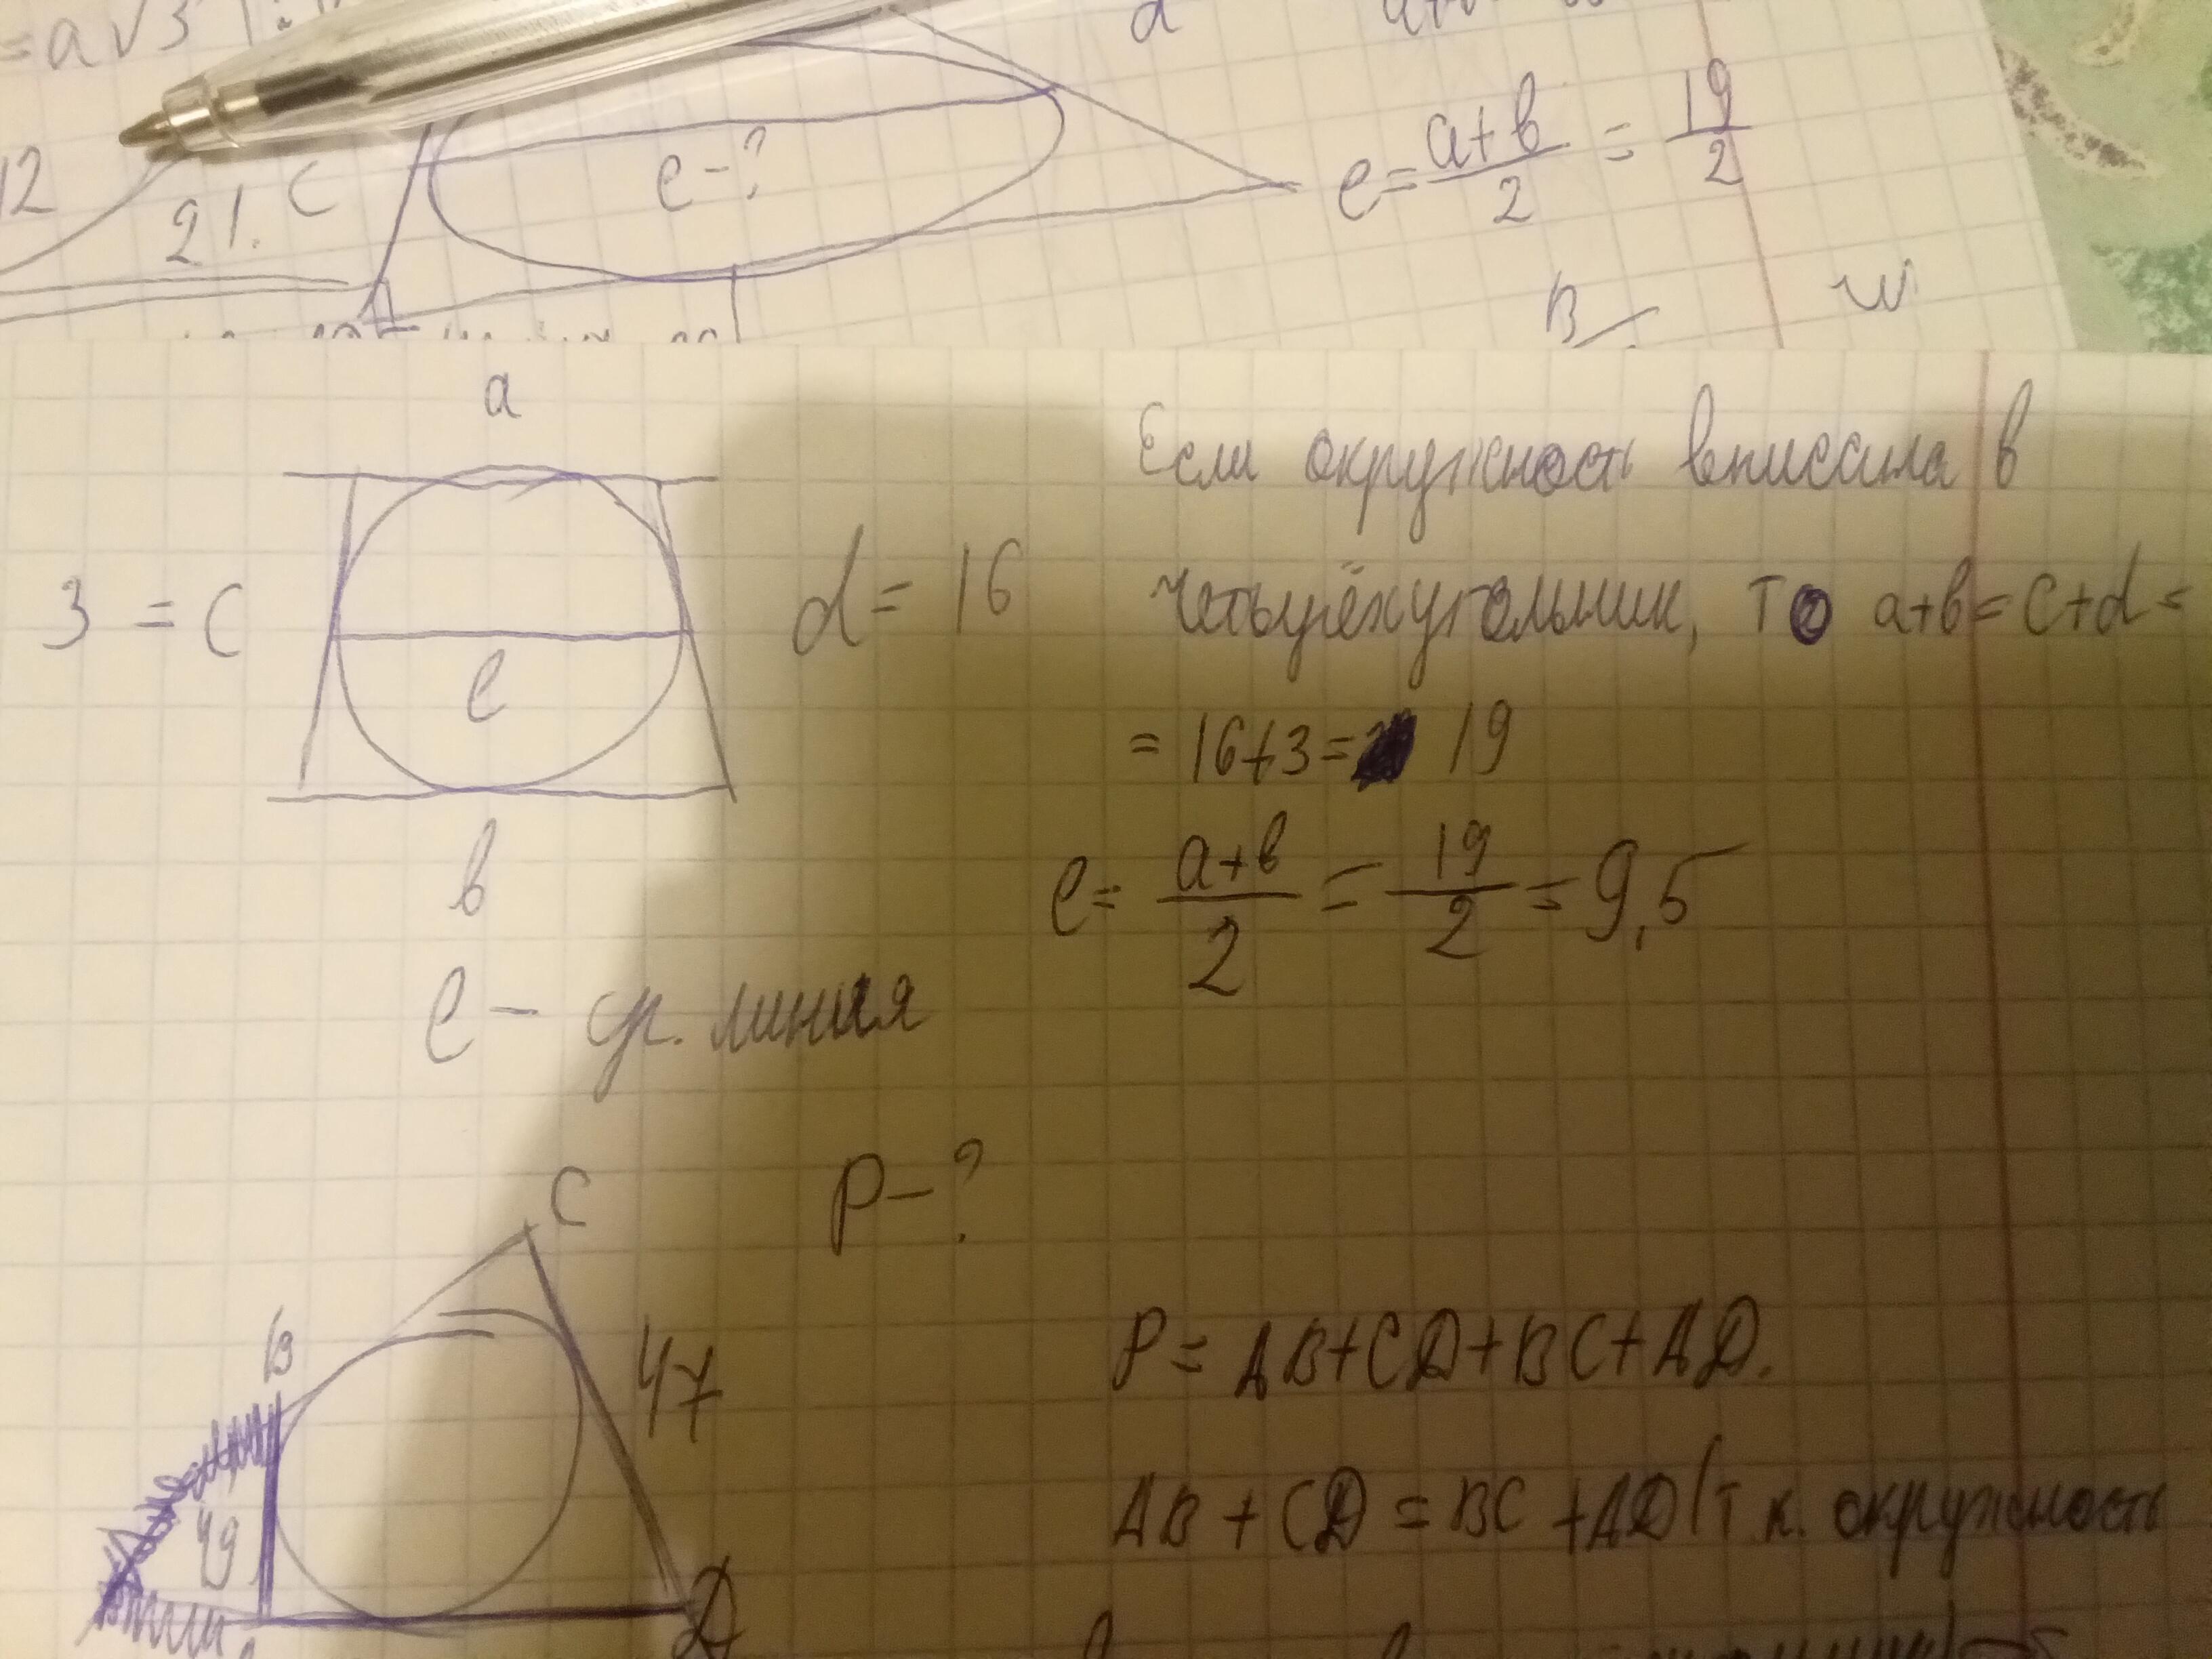 = a√3
d
12
21.
c
e-?
e = a+b/2 = 19/2
B
a
Если окружность вписана в
3 = c
d = 16
четырёхугольник, то a+b = c+d =
e
= 16+3= 19
b
e = a+b/2 = 19/2 = 9,5
e - ср. линия
C
P-?
B
47
P = AB+CD+BC+AD.
49
AB + CD = BC +AD (т к. окружность
D